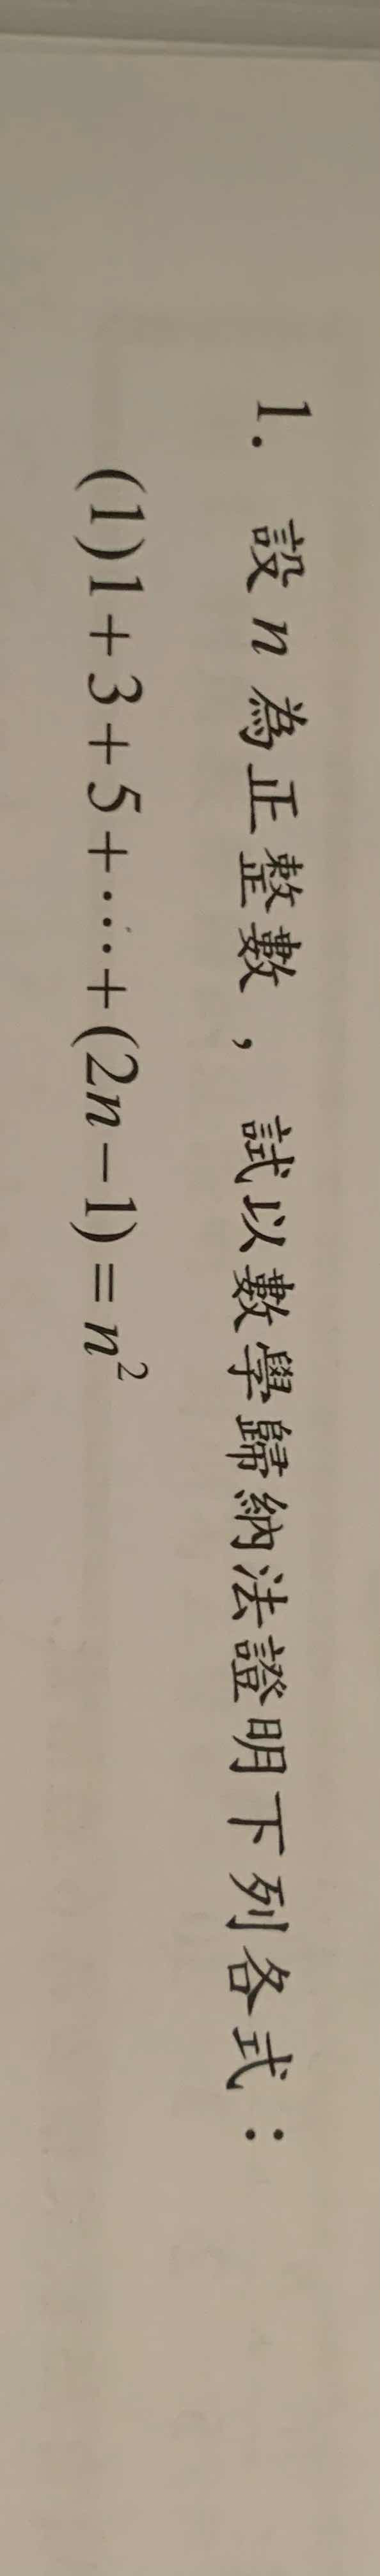 1. 設 n 為正整數，試以數學歸納法證明下列各式：
(1)1+3+5+⋯+(2n−1)=n²